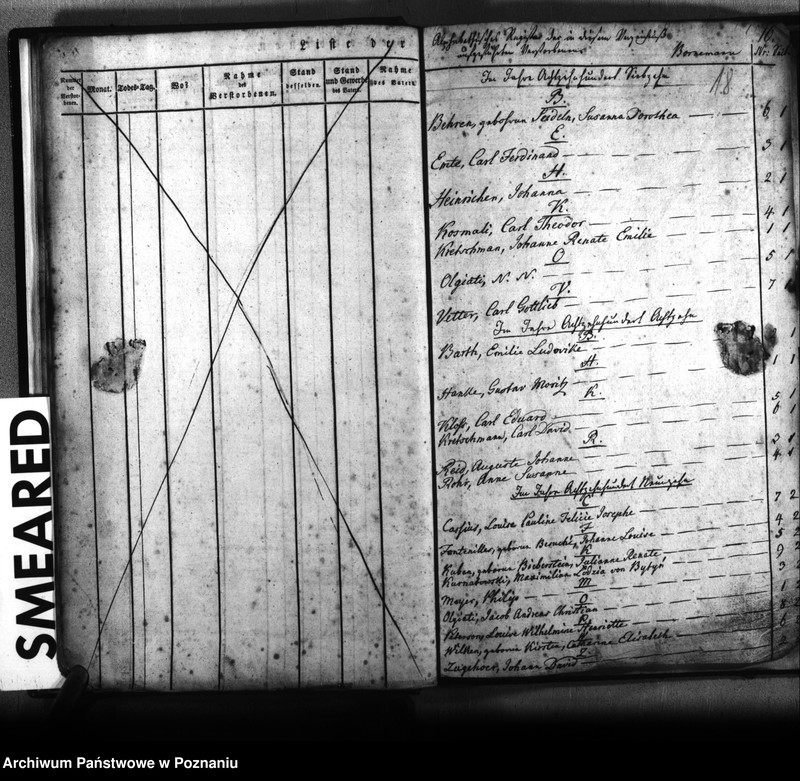 Liste der
Nummer der Verstorbenen.
Monat.
Todes-Tag.
Wo?
Nahme des Verstorbenen.
Stand desselben.
Stand und Gewerbe des Vaters.
Nahme des Vaters.
Alphabethisches Register der in diesem Verzeichniß
aufgeführten Verstorbenen
Bornemann
Im Jahre Achtzehnhundert Siebzehn
18
B.
Behren, geborene Susanna Dorothea 6 1
E.
Ente, Carl Ferdinand 3 1
H.
Heinrichen, Johanna 2 1
K.
Kosmali, Carl Theodor 4 1
Kretschman, Johanne Renate Emilie 1 1
O
Olgiati, N. N. 5 1
V.
Vetter, Carl Gottlieb 7
Im Jahre Achtzehnhundert Achtzehn
B.
Barth, Emilie Ludovike 1
H.
Hanke, Gustav Moritz 1 1
K.
Klose, Carl Eduard 5 1
Kretschmann, Carl David 6 1
R.
Reid, Auguste Johanne 3 1
Rohr, Anne Susanne 4 1
Im Jahre Achtzehnhundert Neunzehn
C
Cassius, Louise Pauline Felicie Josephe 7 2
F
Fontenilles, geborne Johanne Louise 4 2
K
Kuben, geborne Bieberstein, Julianne Renate 5 2
Kurnatowski, Maximilian von Bythin 9 2
M
Meyer, Philip 3
O
Olgiati, Jacob Andreas Christian
P.
Peterson, Louise Wilhelmine Henriette
W
Wilken, geborne Kirsten, Catharine Elisabeth
Z.
Zugehoer, Johann David
SMEARED
Archiwum Państwowe w Poznaniu